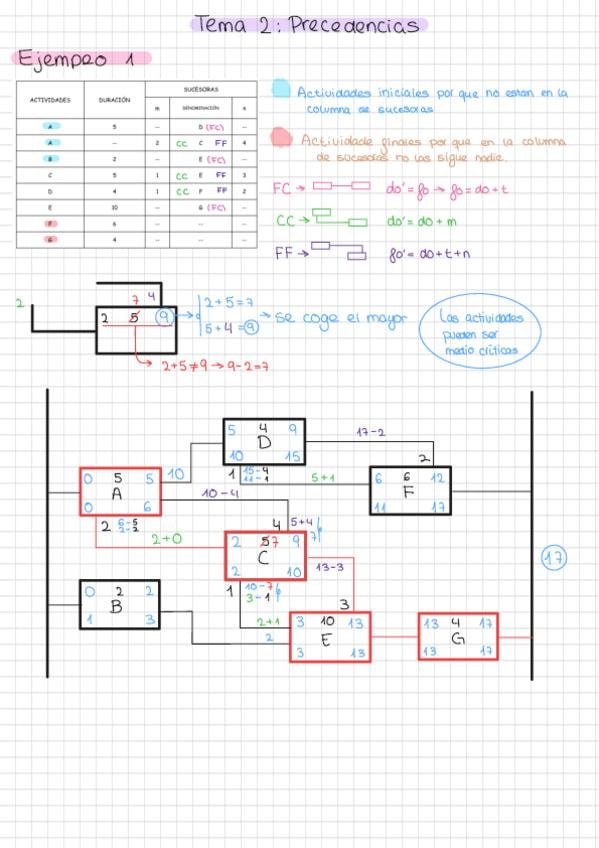 Tema 2: Precedencias
Ejemplo 1
ACTIVIDADES DURACIÓN SUCESORAS
m DENOMINACIÓN n
A 5 -- D (FC) --
A -- 2 CC C FF 4
B 2 -- E (FC) --
C 5 1 CC E FF 3
D 4 1 CC F FF 2
E 10 -- G (FC) --
F 6 -- --
G 4 -- --
Actividades iniciales por que no estan en la
columna de sucesoras
Actividade finales por que en la columna
de sucesoras no las sigue nadie.
FC → do' = fo → fo = do + t
CC → do' = do + m
FF → fo' = do + t + n
2 7 4
2 5 9 → 2+5=7
5+4=9 → se coge el mayor
2+5≠9 → 9-2=7
Las actividades
pueden ser
medio criticas
5 4 9
D
10 15
17-2
2
1 15-4
11-1
5+1
6 6 12
F
11 17
0 5 5
A
0 6
10
10-4
2 6-5
2-2
2+0
4 5+4
7
2 5 7 9
C
2 10
13-3
1 10-7
3-1
0 2 2
B
1 3
2+1
2
3
3 10 13
E
3 13
13 4 17
G
13 17
17